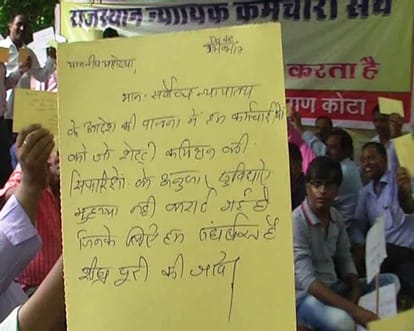 राजस्थान न्यायिक कर्मचारी संघ
करता है
गण कोटा
माननीय महोदया,
मान. सर्वोच्च न्यायालय
के आदेश की पालना में हम कर्मचारीयों
को जो शेट्टी कमिशन की
सिफारिशों के अनुसार सुविधाऐं
मुहय्या नहीं कराई गई है
जिनके लिऐ हम संघर्षरत हैं
शीघ्र पूरी की जावे।